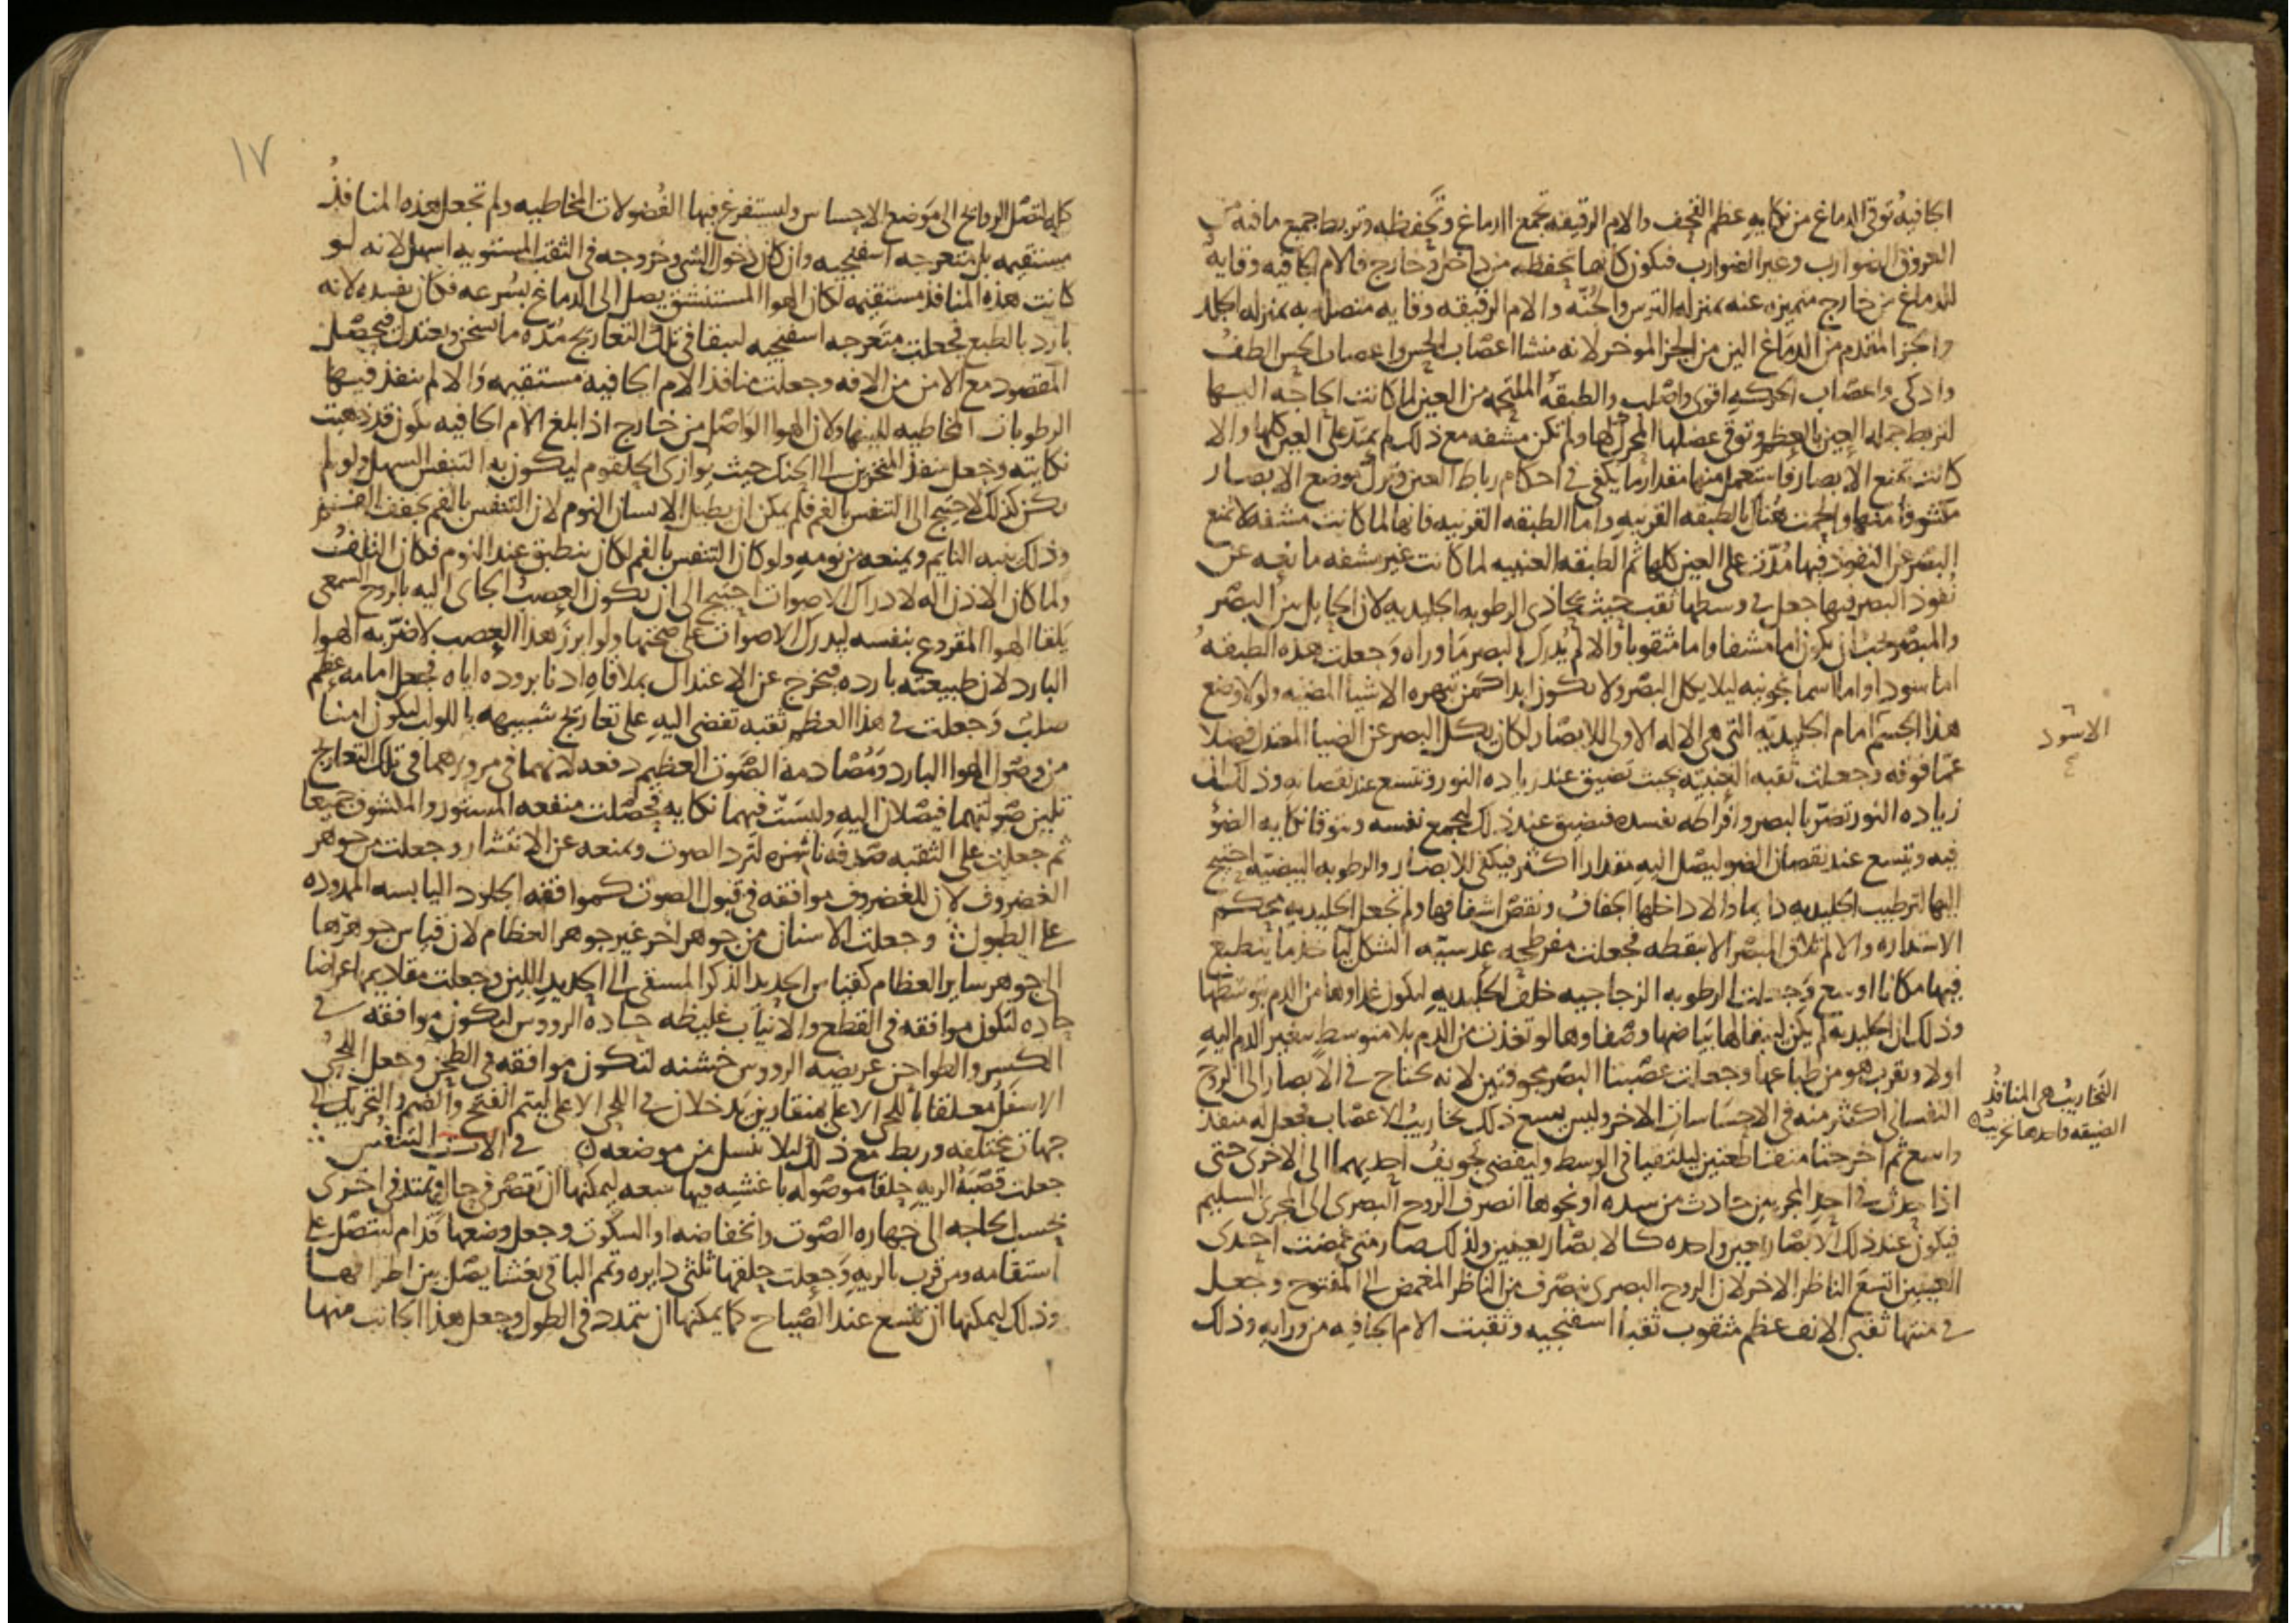 الجافيه توقى الدماغ من نكايه عظم القحف والام الرقيقه تجمع الدماغ وتحفظه وتربط جميع ما فيه من
العروق الضوارب وغير الضوارب فتكون كانها تحفظه من داخل وخارج فالام الجافيه وقايه
للدماغ من خارج متميزه عنه بمنزله الترس والجنه والام الرقيقه وقايه متصله به بمنزله الجلد
والجز المقدم من الدماغ الين من الجز الموخر لانه منشا اعصاب الحس واعصاب الحس الطف
واذكى واعصاب الحركه اقوى واصلب والطبقه الملتحمه من العين لما كانت الحاجه اليها
لتربط جمله العين بالعظم وتوقى عضلها المحرك لها ولم تكن مشفه مع ذلك لم يمتد على العين كلها والا
كانت تمنع الابصار فاستعمل منها مقدار ما يكفى في احكام رباط العين وترك موضع الابصار
مكشوفا منها والحمت هناك بالطبقه القرنيه واما الطبقه القرنيه فانها لما كانت مشفه لا تمنع
البصر عن النفوذ فيها مدت على العين كلها ثم الطبقه العنبيه لما كانت غير مشفه مانعه عن
نفوذ البصر فيها جعل في وسطها ثقب حيث يحاذى الرطوبه الجليديه لان الحايل بين البصر
والمبصر يجب ان يكون اما مشفا واما مثقوبا والا لم يدرك البصر ما وراه وجعلت هذه الطبقه
اما سودا واما اسمانجونيه ليلا يكل البصر ولا يكون ابدا كمن تبهره الاشيا المضيه ولولا وضع
هذا الجسم امام الجليديه التي هي الاله الاولى للابصار لكان يكل البصر عن الضيا المعتدل فضلا
عما فوقه وجعلت ثقبه العنبيه بحيث تضيق عند زياده النور وتتسع عند نقصانه وذلك ان
زياده النور تضر بالبصر وافراطه يفسده فيضيق عند ذلك ليجمع نفسه ويتوقا نكايه الضو
فيه ويتسع عند نقصان الضو ليصل اليه مقدارا اكثر فيكفى للابصار والرطوبه البيضيه احتيج
اليها لترطيب الجليديه دايما والا داخلها الجفاف ونقص اشفافها ولم تجعل الجليديه محكم
الاستداره والا لم تلاق المبصر الا بنقطه فجعلت مفرطحه عدسيه الشكل لياخذ ما ينطبع
فيها مكانا اوسع وجعلت الرطوبه الزجاجيه خلف الجليديه ليكون غداوها من الدم بتوسطها
وذلك ان الجليديه لم يكن ليبقا لها بياضها وصفاوها لو تغذت من الدم بلا متوسط يغير الدم اليه
اولا ويقرب هو من طباعها وجعلت عصبتا البصر مجوفتين لانه يحتاج في الابصار الى الروح
النفساني اكثر منه في الاحساسات الاخر وليس يسع ذلك نخاريب الاعصاب فجعل له منفذ
واسع ثم اخرجتا متقاطعتين ليلتقيا في الوسط وليفضى تجويف احديهما الى الاخرى حتى
اذا حدث في احد المجريين حادث من سده او نحوها انصرف الروح البصرى الى المجرى السليم
فيكون عند ذلك الابصار بعين واحده كالابصار بعينين ولذلك صار متى غمضت احدى
العينين اتسع الناظر الاخر لان الروح البصرى ينصرف من الناظر المغمض الى المفتوح وجعل
في منتها ثقبى الانف عظم مثقوب ثقبا اسفنجيه وثقبت الام الجافيه من ورايه وذلك
الاسود
النخاريب هي المنافذ
الضيقه واحدها نخروب
١٧
كله لتصل الروايح الى موضع الاحساس وليستفرغ فيها الفضولات المخاطيه ولم تجعل هذه المنافذ
مستقيمه بل متعرجه اسفنجيه وان كان دخول الشي وخروجه في الثقب المستويه اسهل لانه لو
كانت هذه المنافذ مستقيمه لكان الهوا المستنشق يصل الى الدماغ بسرعه فكان يفسده لانه
بارد بالطبع فجعلت متعرجه اسفنجيه ليبقا في تلك التعاريج مده ما يسخن ويعتدل فيحصل
المقصود مع الامن من الافه وجعلت منافذ الام الجافيه مستقيمه والا لم ينفذ فيها
الرطوبات المخاطيه للينها ولان الهوا الواصل من خارج اذا بلغ الام الجافيه يكون قد ذهبت
نكايته وجعل منفذ المنخرين الى الحنك حيث يوازى الحلقوم ليكون به التنفس السهل ولو لم
يكن كذلك لاحتيج الى التنفس بالفم فلم يكن ان يطبل الانسان النوم لان التنفس بالفم يجفف الفم
وذلك ينبه النايم ويمنعه من نومه ولو كان التنفس بالفم لكان ينطبق عند النوم فكان التلف
ولما كان الاذن اله لادراك الاصوات احتيج الى ان يكون العصب الجاى اليه بالروح السمعى
يلقا الهوا المقروع بنفسه ليدرك الاصوات على صحتها ولو ابرز هذا العصب لاضر به الهوا
البارد لان طبيعته بارده فيخرج عن الاعتدال بملاقاه ادنا بروده اياه فجعل امامه عظم
صلب وجعلت في هذا العظم ثقبه تفضى اليه على تعاريج شبيهه باللولب ليكون امنا
من وصول الهوا البارد ومصادمه الصوت العظيم دفعه لانهما في مرورهما في تلك التعاريج
تلين صولتهما فيصلان اليه وليست فيهما نكايه فحصلت منفعه المستور والمكشوف جميعا
ثم جعلت على الثقبه صدفه ناشزه لترد الصوت ويمنعه عن الانتشار وجعلت من جوهر
الغضروف لان للغضروف موافقه في قبول الصوت كموافقه الجلود اليابسه الممدوده
على الطبول وجعلت الاسنان من جوهر اخر غير جوهر العظام لان قياس جوهرها
الى جوهر ساير العظام كقياس الحديد الذكر المسقى الى الحديد اللين وجعلت مقاديمها عراضا
حاده لتكون موافقه في القطع والانياب غليظه حاده الرووس ليكون موافقه في
الكسر والطواحن عريضه الرووس خشنه لتكون موافقه في الطحن وجعل اللحى
الاسفل معلقا باللحى الاعلى بمنقارين يدخلان في اللحى الاعلى ليتم الفتح والضم والتحريك الى
جهات مختلفه وربط مع ذلك ليلا ينسل من موضعه في الات التنفس
جعلت قصبه الريه حلقا موصوله باغشيه فيها سعه ليمكنها ان تقصر في حال وتمتد في اخرى
بحسب الحاجه الى جهاره الصوت وانخفاضه او السكوت وجعل وضعها قدام لتتصل على
استقامه ومن قرب بالريه وجعلت حلقها ثلثى دايره وتمم الباقى بغشا يصل بين اطرافها
وذلك ليمكنها ان تتسع عند الصياح كما يمكنها ان يتمدد في الطول وجعل هذا الجانب منها